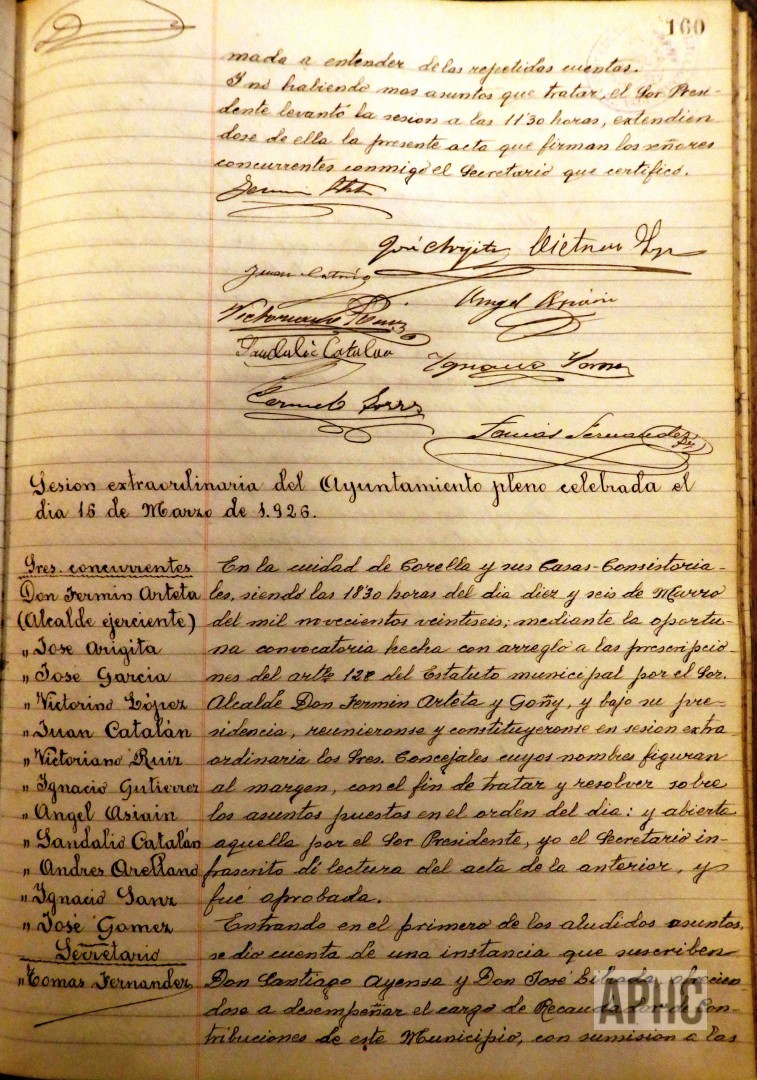 160
mada a entender de las repetidas cuentas.
Y no habiendo mas asuntos que tratar, el Sor Presi-
dente levantó la sesion a las 11'30 horas, extendien
dose de ella la presente acta que firman los señores
concurrentes conmigo el Secretario que certifico.
José Arijita
Juan Catalán
Angel Asiain
Victoriano Ruiz
Sandalio Catalan
Ignacio
Tomás Fernandez
Sesion extraordinaria del Ayuntamiento pleno celebrada el
dia 16 de Marzo de 1.926.
Sres. concurrentes
Don Fermin Arteta
(Alcalde ejerciente)
" José Arigita
" José Garcia
" Victorino López
" Juan Catalán
" Victoriano Ruiz
" Ignacio Gutierrez
" Angel Asiain
" Sandalio Catalán
" Andres Arellano
" Ignacio Sanz
" José Gomez
Secretario
" Tomas Fernandez
En la ciudad de Corella y sus Casas-Consistoria-
les, siendo las 18'30 horas del dia diez y seis de Marzo
del mil novecientos veintiseis; mediante la oportu-
na convocatoria hecha con arreglo a las prescripcio-
nes del del Estatuto municipal por el Sor.
Alcalde Don Fermin Arteta y Goñy, y bajo su pre-
sidencia, reunieronse y constituyeronse en sesion extra-
ordinaria los Sres. Concejales cuyos nombres figuran
al margen, con el fin de tratar y resolver sobre
los asuntos puestos en el orden del dia: y abierta
aquella por el Sor Presidente, yo el Secretario in-
frascrito di lectura del acta de la anterior, y
fué aprobada.
Entrando en el primero de los aludidos asuntos,
se dio cuenta de una instancia que suscriben
Don Santiago Ayensa y Don José ofrecien-
dose a desempeñar el cargo de Recaudador de Con-
tribuciones de este Municipio, con sumision a las
APHC